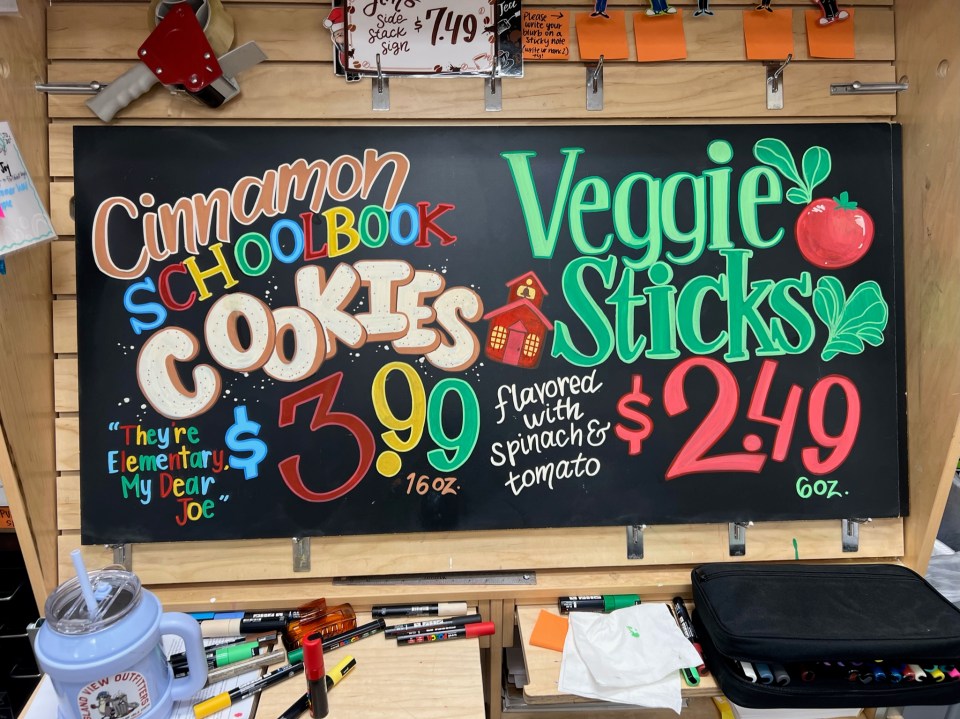 side
stack
sign
$7.49
Please →
write your
blurb on a
sticky note
Cinnamon
SCHOOLBOOK
COOKIES
"They're
Elementary,
My Dear
Joe"
$3.99
16 oz.
Veggie
Sticks
flavored
with
spinach &
tomato
$2.49
6 oz.
VIEW OUTFITTERS